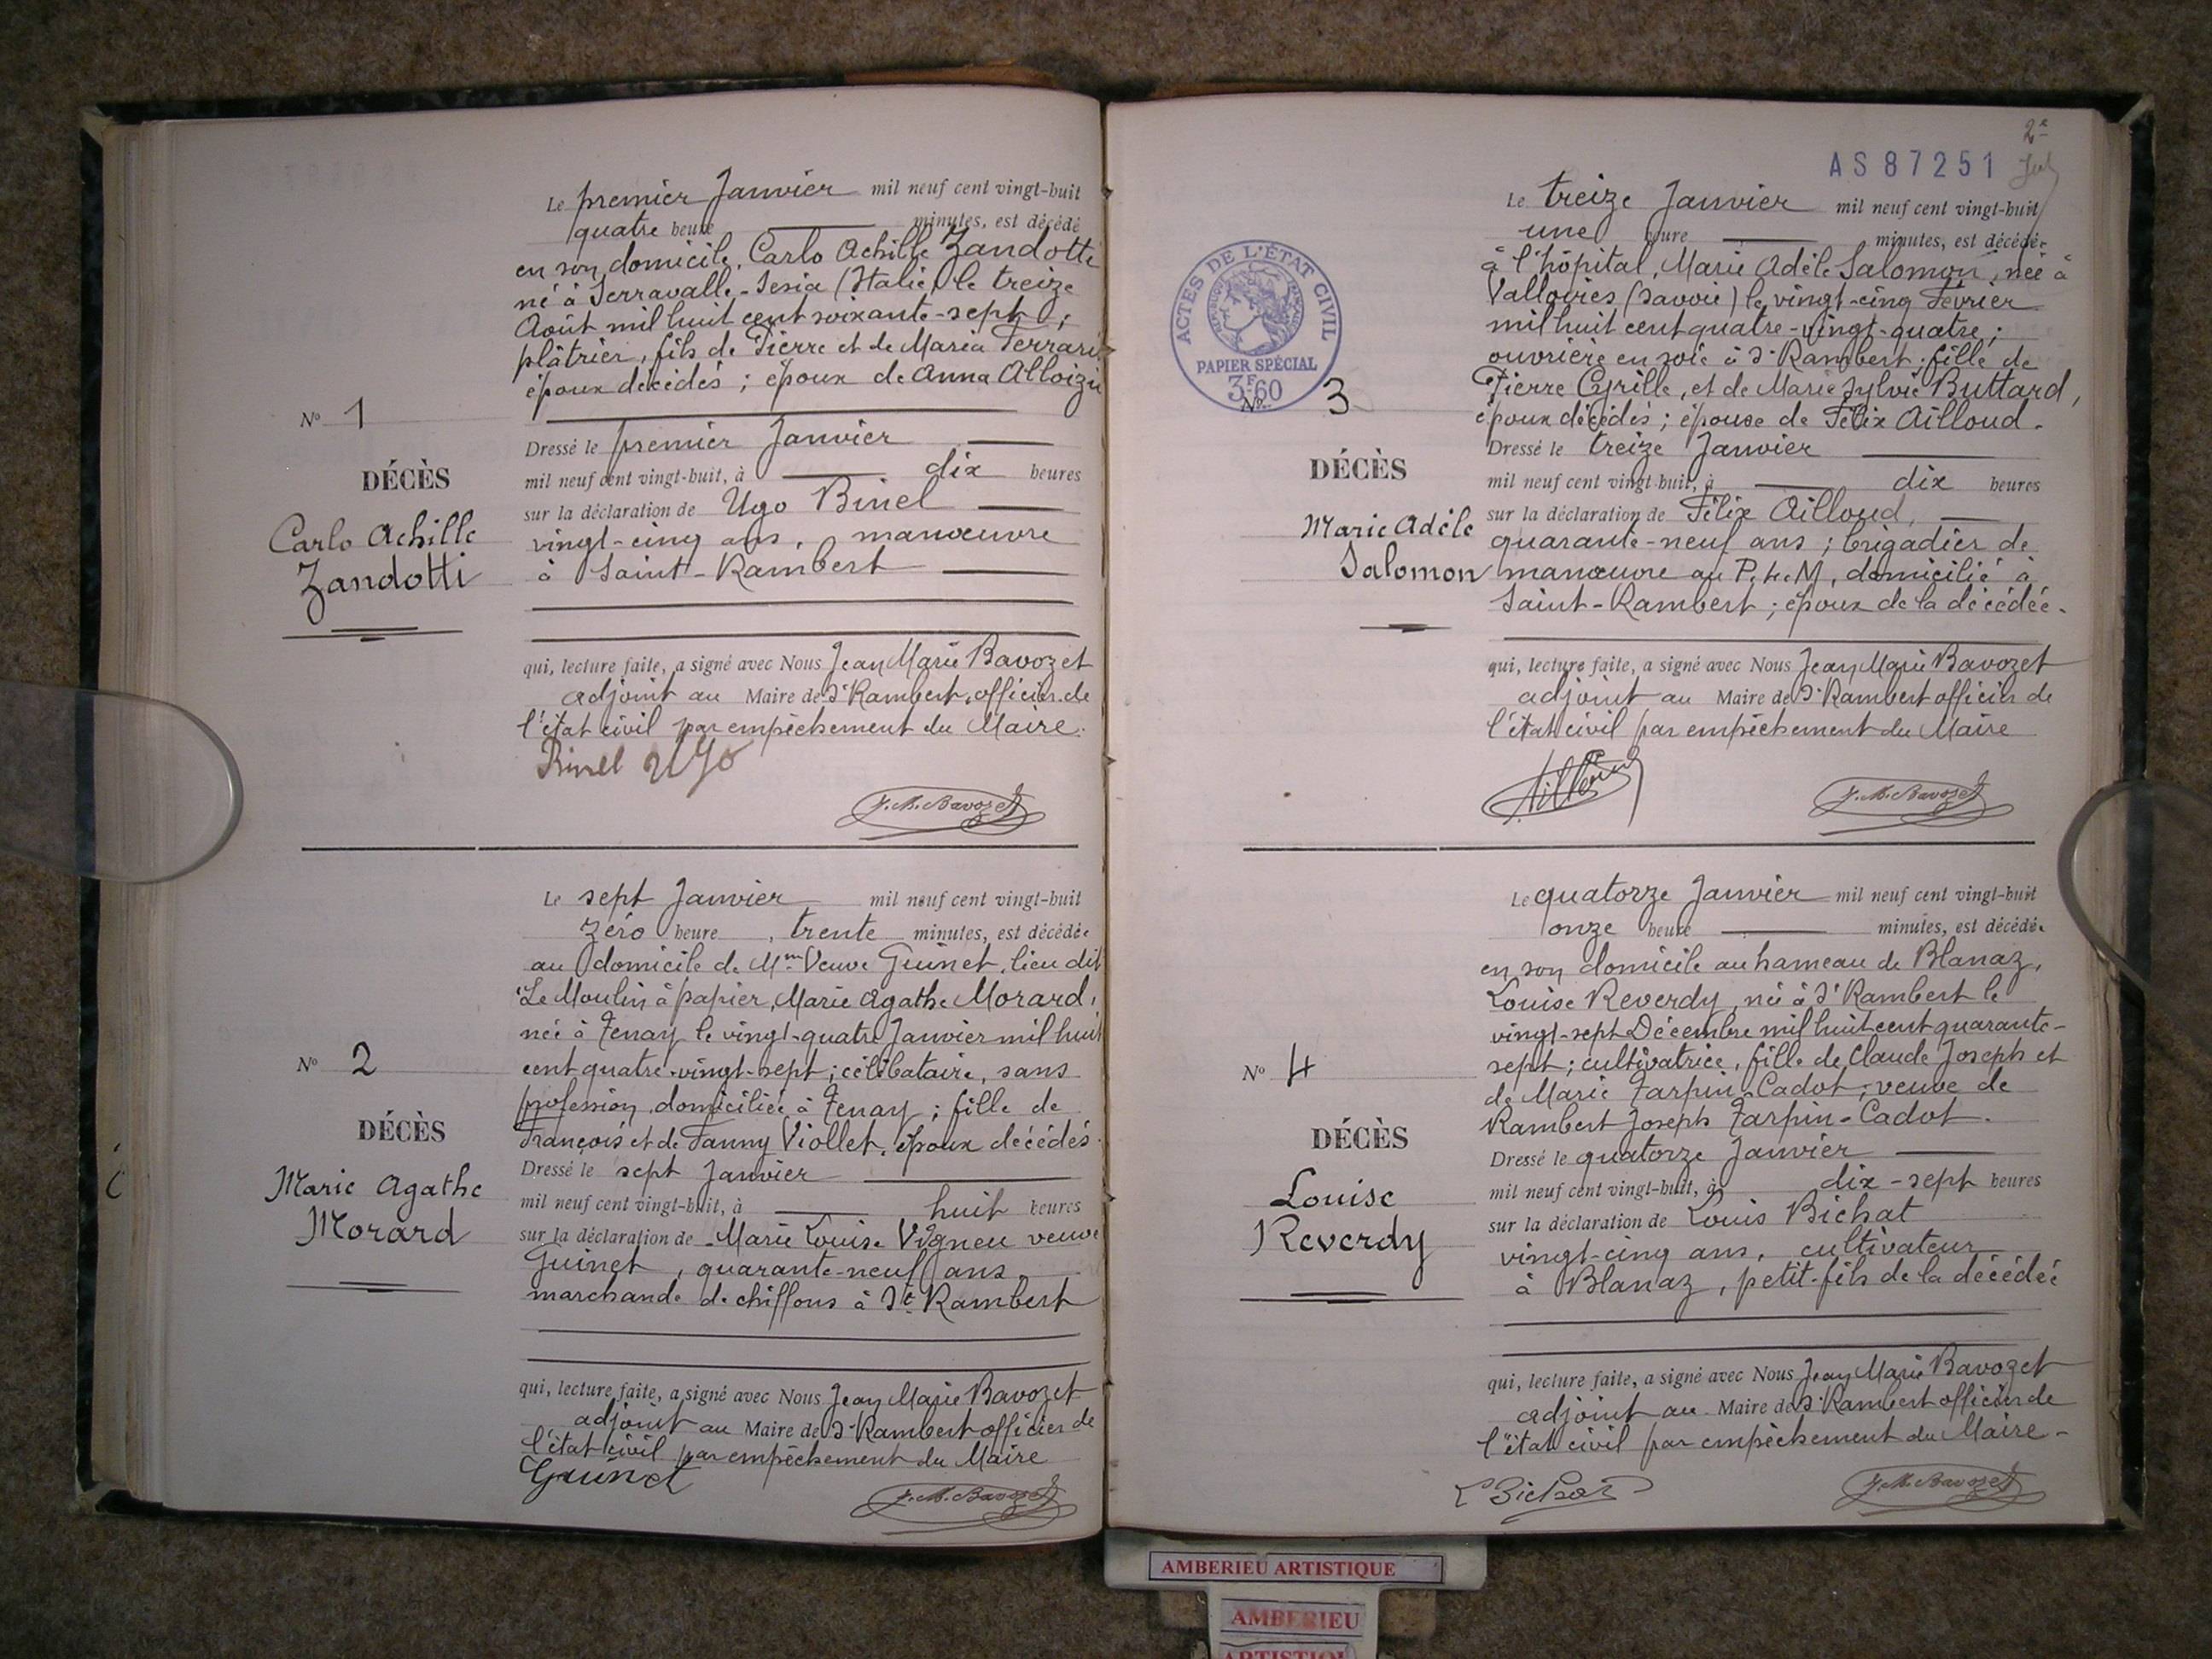 Le premier Janvier mil neuf cent vingt-huit
quatre heure minutes, est décédé
en son domicile, Carlo Achille Zandotti
né à Serravalle-Sesia (Italie) le treize
Août mil huit cent soixante-sept;
plâtrier, fils de Pierre et de Maria Ferrari
époux décédés; époux de Anna Alloizio
N° 1
DÉCÈS
Carlo Achille
Zandotti
Dressé le premier Janvier
mil neuf cent vingt-huit, à dix heures
sur la déclaration de Ugo Binel
vingt-cinq ans, manœuvre
à Saint-Rambert
qui, lecture faite, a signé avec Nous Jean Marie Bavozet
adjoint au Maire de St Rambert, officier de
l'état civil par empêchement du Maire.
Binel Ugo
J.M. Bavozet
Le sept Janvier mil neuf cent vingt-huit
Zéro heure, trente minutes, est décédée
au domicile de Mme Veuve Guinet, lieu dit
"Le Moulin à papier, Marie Agathe Morard,
née à Tenay le vingt-quatre Janvier mil huit
cent quatre-vingt-sept; célibataire, sans
profession, domiciliée à Tenay; fille de
François et de Fanny Viollet, époux décédés.
N° 2
DÉCÈS
Marie Agathe
Morard
Dressé le sept Janvier
mil neuf cent vingt-huit, à huit heures
sur la déclaration de Marie Louise Vigneu veuve
Guinet, quarante-neuf ans,
marchande de chiffons à St Rambert
qui, lecture faite, a signé avec Nous Jean Marie Bavozet
adjoint au Maire de St Rambert officier de
l'état civil par empêchement du Maire
Guinet
J.M. Bavozet
2e
AS 87251
ACTES DE L'ÉTAT CIVIL
RÉPUBLIQUE FRANÇAISE
PAPIER SPÉCIAL
3F60
Le treize Janvier mil neuf cent vingt-huit
une heure minutes, est décédée
à l'hôpital, Marie Adèle Salomon, née à
Valloires (Savoie) le vingt-cinq Février
mil huit cent quatre-vingt-quatre;
ouvrière en soie à St Rambert; fille de
Pierre Cyrille, et de Marie Sylvie Buttard,
époux décédés; épouse de Félix Ailloud.
N° 3
DÉCÈS
Marie Adèle
Salomon
Dressé le treize Janvier
mil neuf cent vingt-huit, à dix heures
sur la déclaration de Félix Ailloud,
quarante-neuf ans; brigadier de
manœuvre au P.L.M, domicilié à
Saint-Rambert; époux de la décédée.
qui, lecture faite, a signé avec Nous Jean Marie Bavozet
adjoint au Maire de St Rambert officier de
l'état civil par empêchement du Maire
Ailloud
J.M. Bavozet
Le quatorze Janvier mil neuf cent vingt-huit
onze heure minutes, est décédée
en son domicile au hameau de Blanaz,
Louise Reverdy, née à St Rambert le
vingt-sept Décembre mil huit cent quarante-
sept; cultivatrice, fille de Claude Joseph et
de Marie Tarpin-Cadot; veuve de
Rambert Joseph Tarpin-Cadot.
N° 4
DÉCÈS
Louise
Reverdy
Dressé le quatorze Janvier
mil neuf cent vingt-huit, à dix-sept heures
sur la déclaration de Louis Bichat
vingt-cinq ans, cultivateur
à Blanaz, petit-fils de la décédée
qui, lecture faite, a signé avec Nous Jean Marie Bavozet
adjoint au Maire de St Rambert officier de
l'état civil par empêchement du Maire.
L Bichat
J.M. Bavozet
AMBERIEU ARTISTIQUE
AMBERIEU
ARTISTIQUE